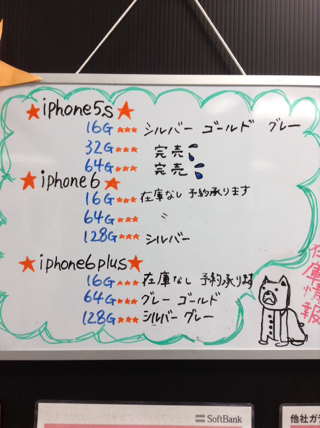 ★iphone5s★
16G★★★ シルバー ゴールド グレー
32G★★★ 完売
64G★★★ 完売
★iphone6★
16G★★★ 在庫なし 予約承ります
64G★★★ 〃
128G★★★ シルバー
★iphone6plus★
16G★★★ 在庫なし 予約承ります
64G★★★ グレー ゴールド
128G★★★ シルバー グレー
在庫情報
SoftBank
他社ガラ